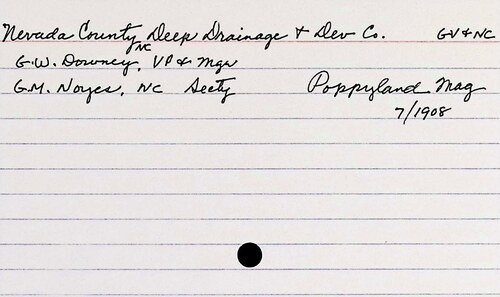 Nevada County Deep Drainage & Dev Co. GV & NC
G.W. Downey, NC VP & Mgr
G.M. Noyes, NC Secty Poppyland Mag
7/1908